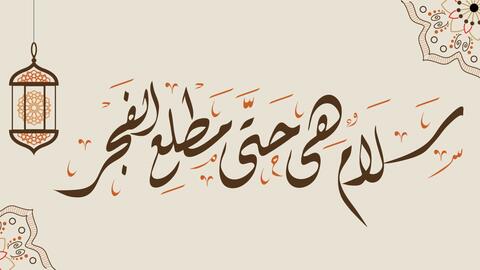 سلام هي حتى مطلع الفجر